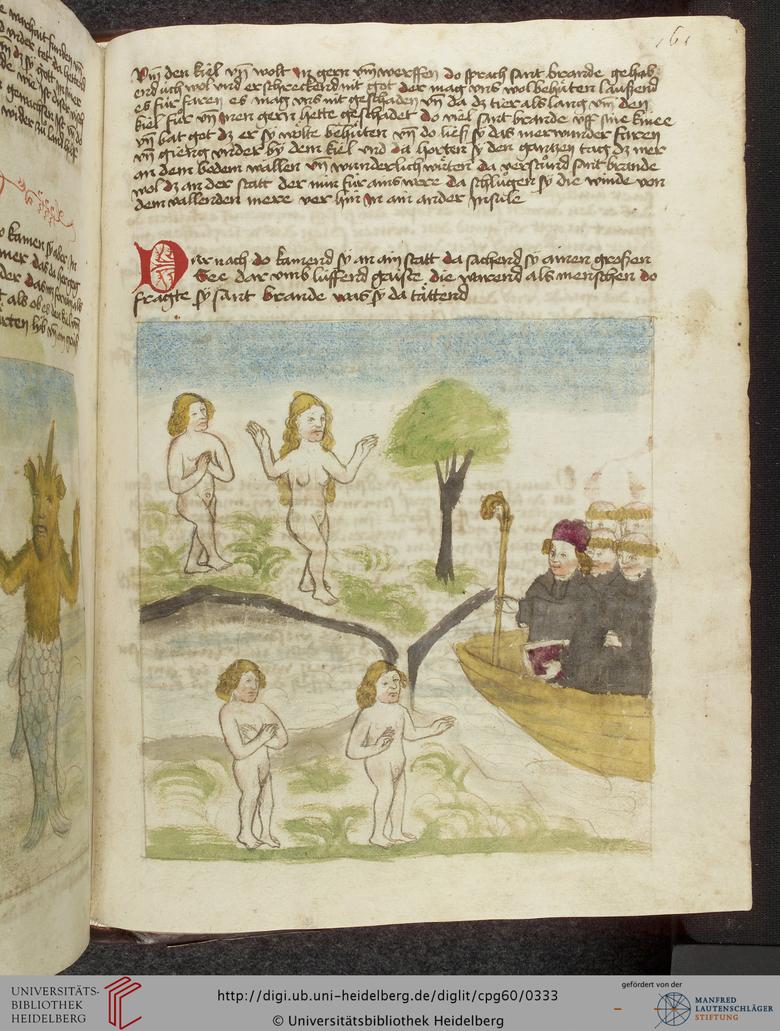 161
vm̄ den kiel vn̄ wolt in gern vm̄ werffen do sprach sant brande gehab
end üch wol vnd erschreckend nit got der mag vns wol behüten laussend
es für faren es mag vns nit geschaden vn̄ da dz tier als lang vm̄ den
kiel für vn̄ inen gern hette geschadet do viel sant brande vff sine kniee
vn̄ bat got dz er sÿ wölte behüten vn̄ do ließ sÿ das merwunder faren
vn̄ gieng vnder bÿ dem kiel vnd da horten sÿ den gantzen tag dz mer
an dem bodem wallen vn̄ wunderlich wüten da verstůnd sant brande
wol dz an der statt der für ains were da schlůgen sÿ die winde von
dem wallenden mere ver hin in ain ander Insule
Dar nach do kamend sÿ an ain statt da sachend sÿ ainen grossen
See dar vmb lüffend gaiste die warend als menschen do
fragte sÿ sant brande was sÿ da tättend
UNIVERSITÄTS-
BIBLIOTHEK
HEIDELBERG
http://digi.ub.uni-heidelberg.de/diglit/cpg60/0333
© Universitätsbibliothek Heidelberg
gefördert von der
MANFRED
LAUTENSCHLÄGER
STIFTUNG